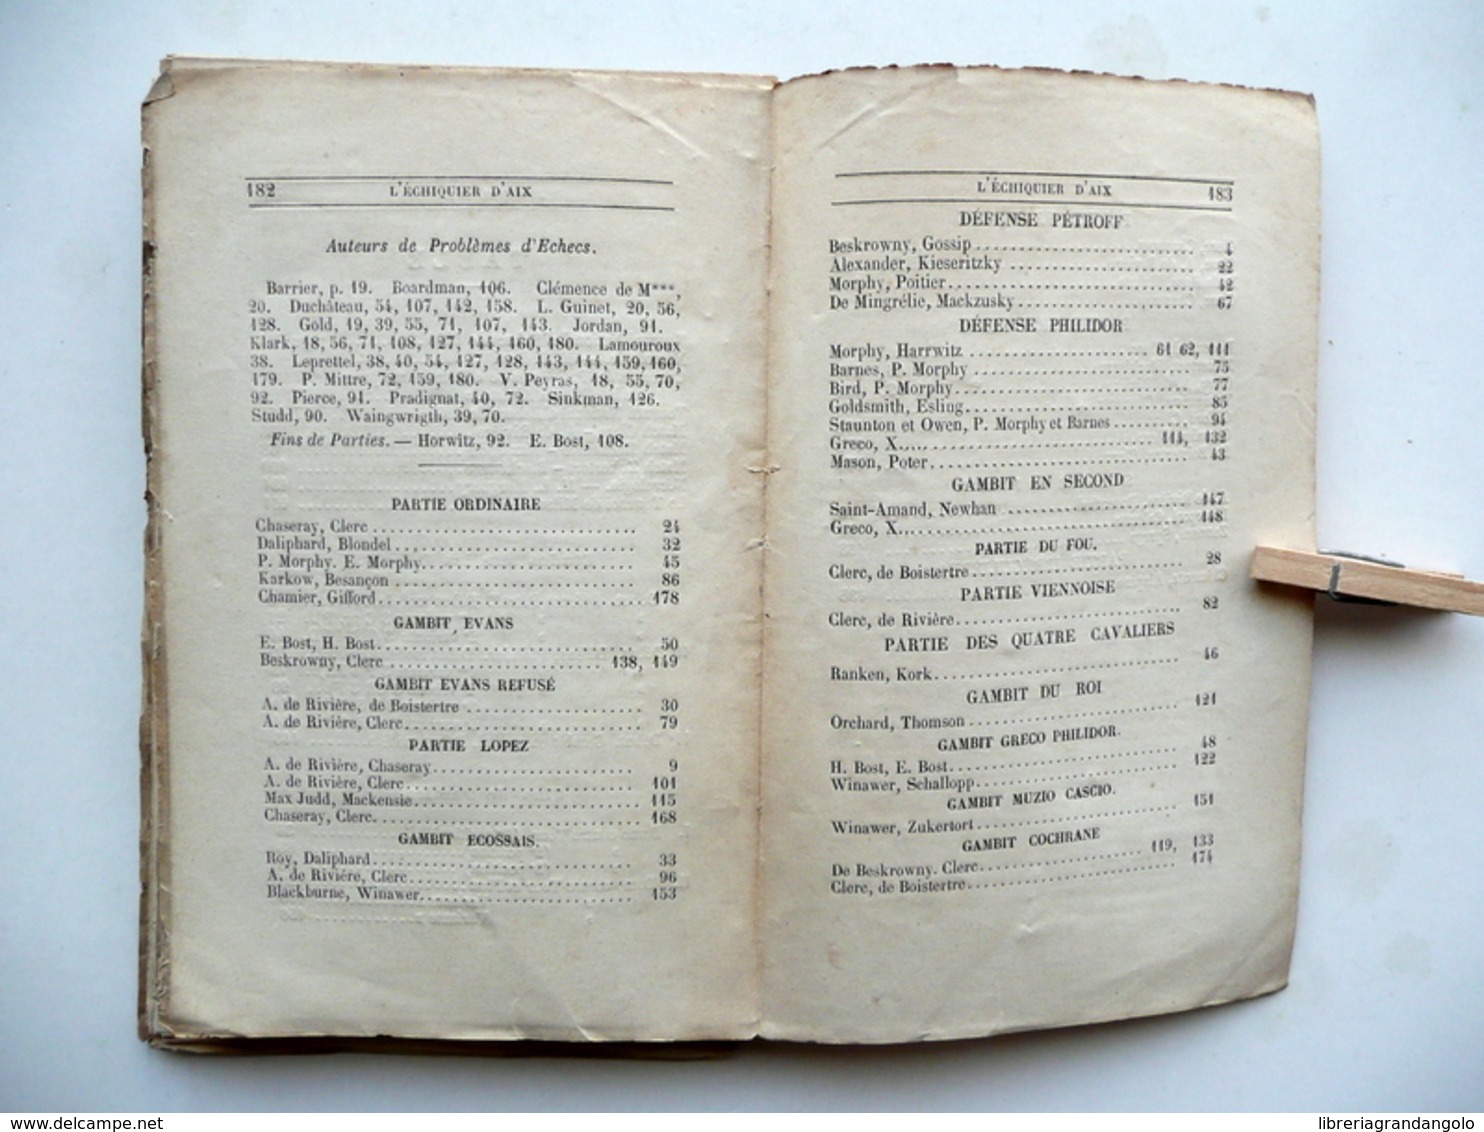 182 L'ÉCHIQUIER D'AIX
Auteurs de Problèmes d'Echecs.
Barrier, p. 19. Boardman, 106. Clémence de M***,
20. Duchâteau, 54, 107, 142, 158. L. Guinet, 20, 56,
128. Gold, 19, 39, 55, 71, 107, 143. Jordan, 91.
Klark, 18, 56, 71, 108, 127, 144, 160, 180. Lamouroux
38. Leprettel, 38, 40, 54, 127, 128, 143, 144, 159, 160,
179. P. Mittre, 72, 159, 180. V. Peyras, 18, 55, 70,
92. Pierce, 91. Pradignat, 40, 72. Sinkman, 126.
Studd, 90. Waingwrigth, 39, 70.
Fins de Parties. — Horwitz, 92. E. Bost, 108.
PARTIE ORDINAIRE
Chaseray, Clerc 24
Daliphard, Blondel 32
P. Morphy. E. Morphy 45
Karkow, Besançon 86
Chamier, Gifford 178
GAMBIT EVANS
E. Bost, H. Bost 50
Beskrowny, Clerc 138, 149
GAMBIT EVANS REFUSÉ
A. de Rivière, de Boistertre 30
A. de Rivière, Clerc 79
PARTIE LOPEZ
A. de Rivière, Chaseray 9
A. de Rivière, Clerc 101
Max Judd, Mackensie 115
Chaseray, Clerc 168
GAMBIT ECOSSAIS.
Roy, Daliphard 33
A. de Rivière, Clerc 96
Blackburne, Winawer 153
L'ÉCHIQUIER D'AIX 183
DÉFENSE PÉTROFF.
Beskrowny, Gossip 4
Alexander, Kieseritzky 22
Morphy, Poitier 42
De Mingrélie, Mackzusky 67
DÉFENSE PHILIDOR
Morphy, Harrwitz 61 62, 111
Barnes, P. Morphy 75
Bird, P. Morphy 77
Goldsmith, Esling 85
Staunton et Owen, P. Morphy et Barnes 94
Greco, X 114, 132
Mason, Poter 43
GAMBIT EN SECOND
Saint-Amand, Newhan 147
Greco, X 148
PARTIE DU FOU.
Clerc, de Boistertre 28
PARTIE VIENNOISE
Clerc, de Rivière 82
PARTIE DES QUATRE CAVALIERS
Ranken, Kork 46
GAMBIT DU ROI
Orchard, Thomson 121
GAMBIT GRECO PHILIDOR.
H. Bost, E. Bost 48
Winawer, Schallopp 122
GAMBIT MUZIO CASCIO.
Winawer, Zukertort 151
GAMBIT COCHRANE
De Beskrowny. Clerc 119, 133
Clerc, de Boistertre 174
delcampe.net
libreriagrandangolo